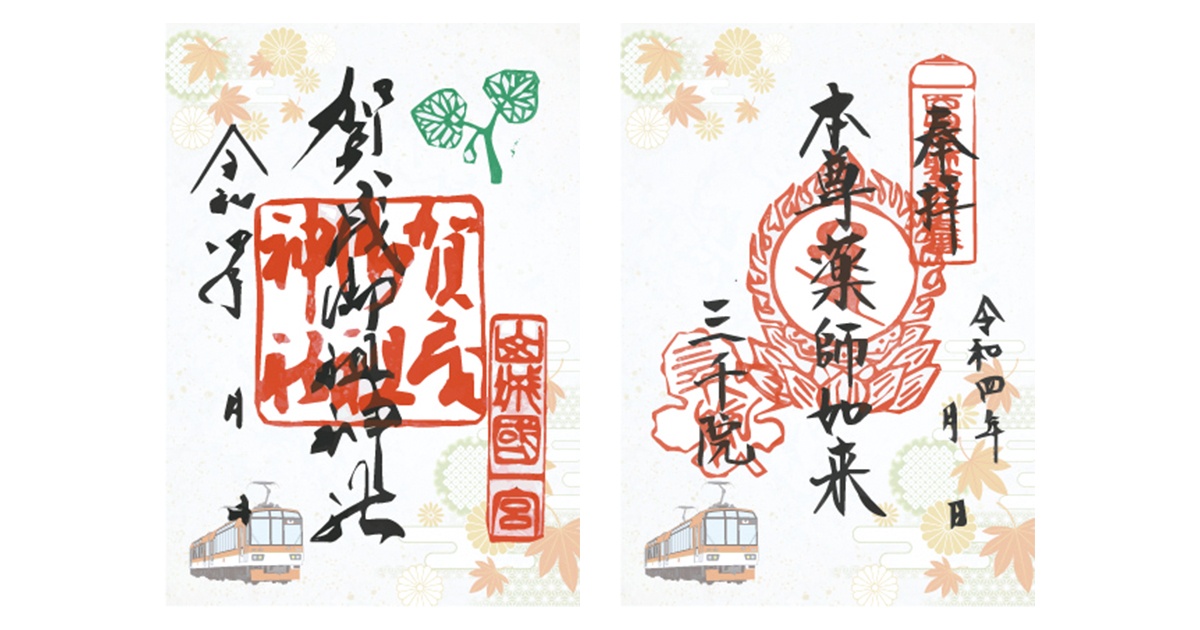 山城國一宮
賀茂御祖神社
賀茂
御祖
神社
令和四年
月
日
奉拝
本尊薬師如来
三千院
令和四年
月
日